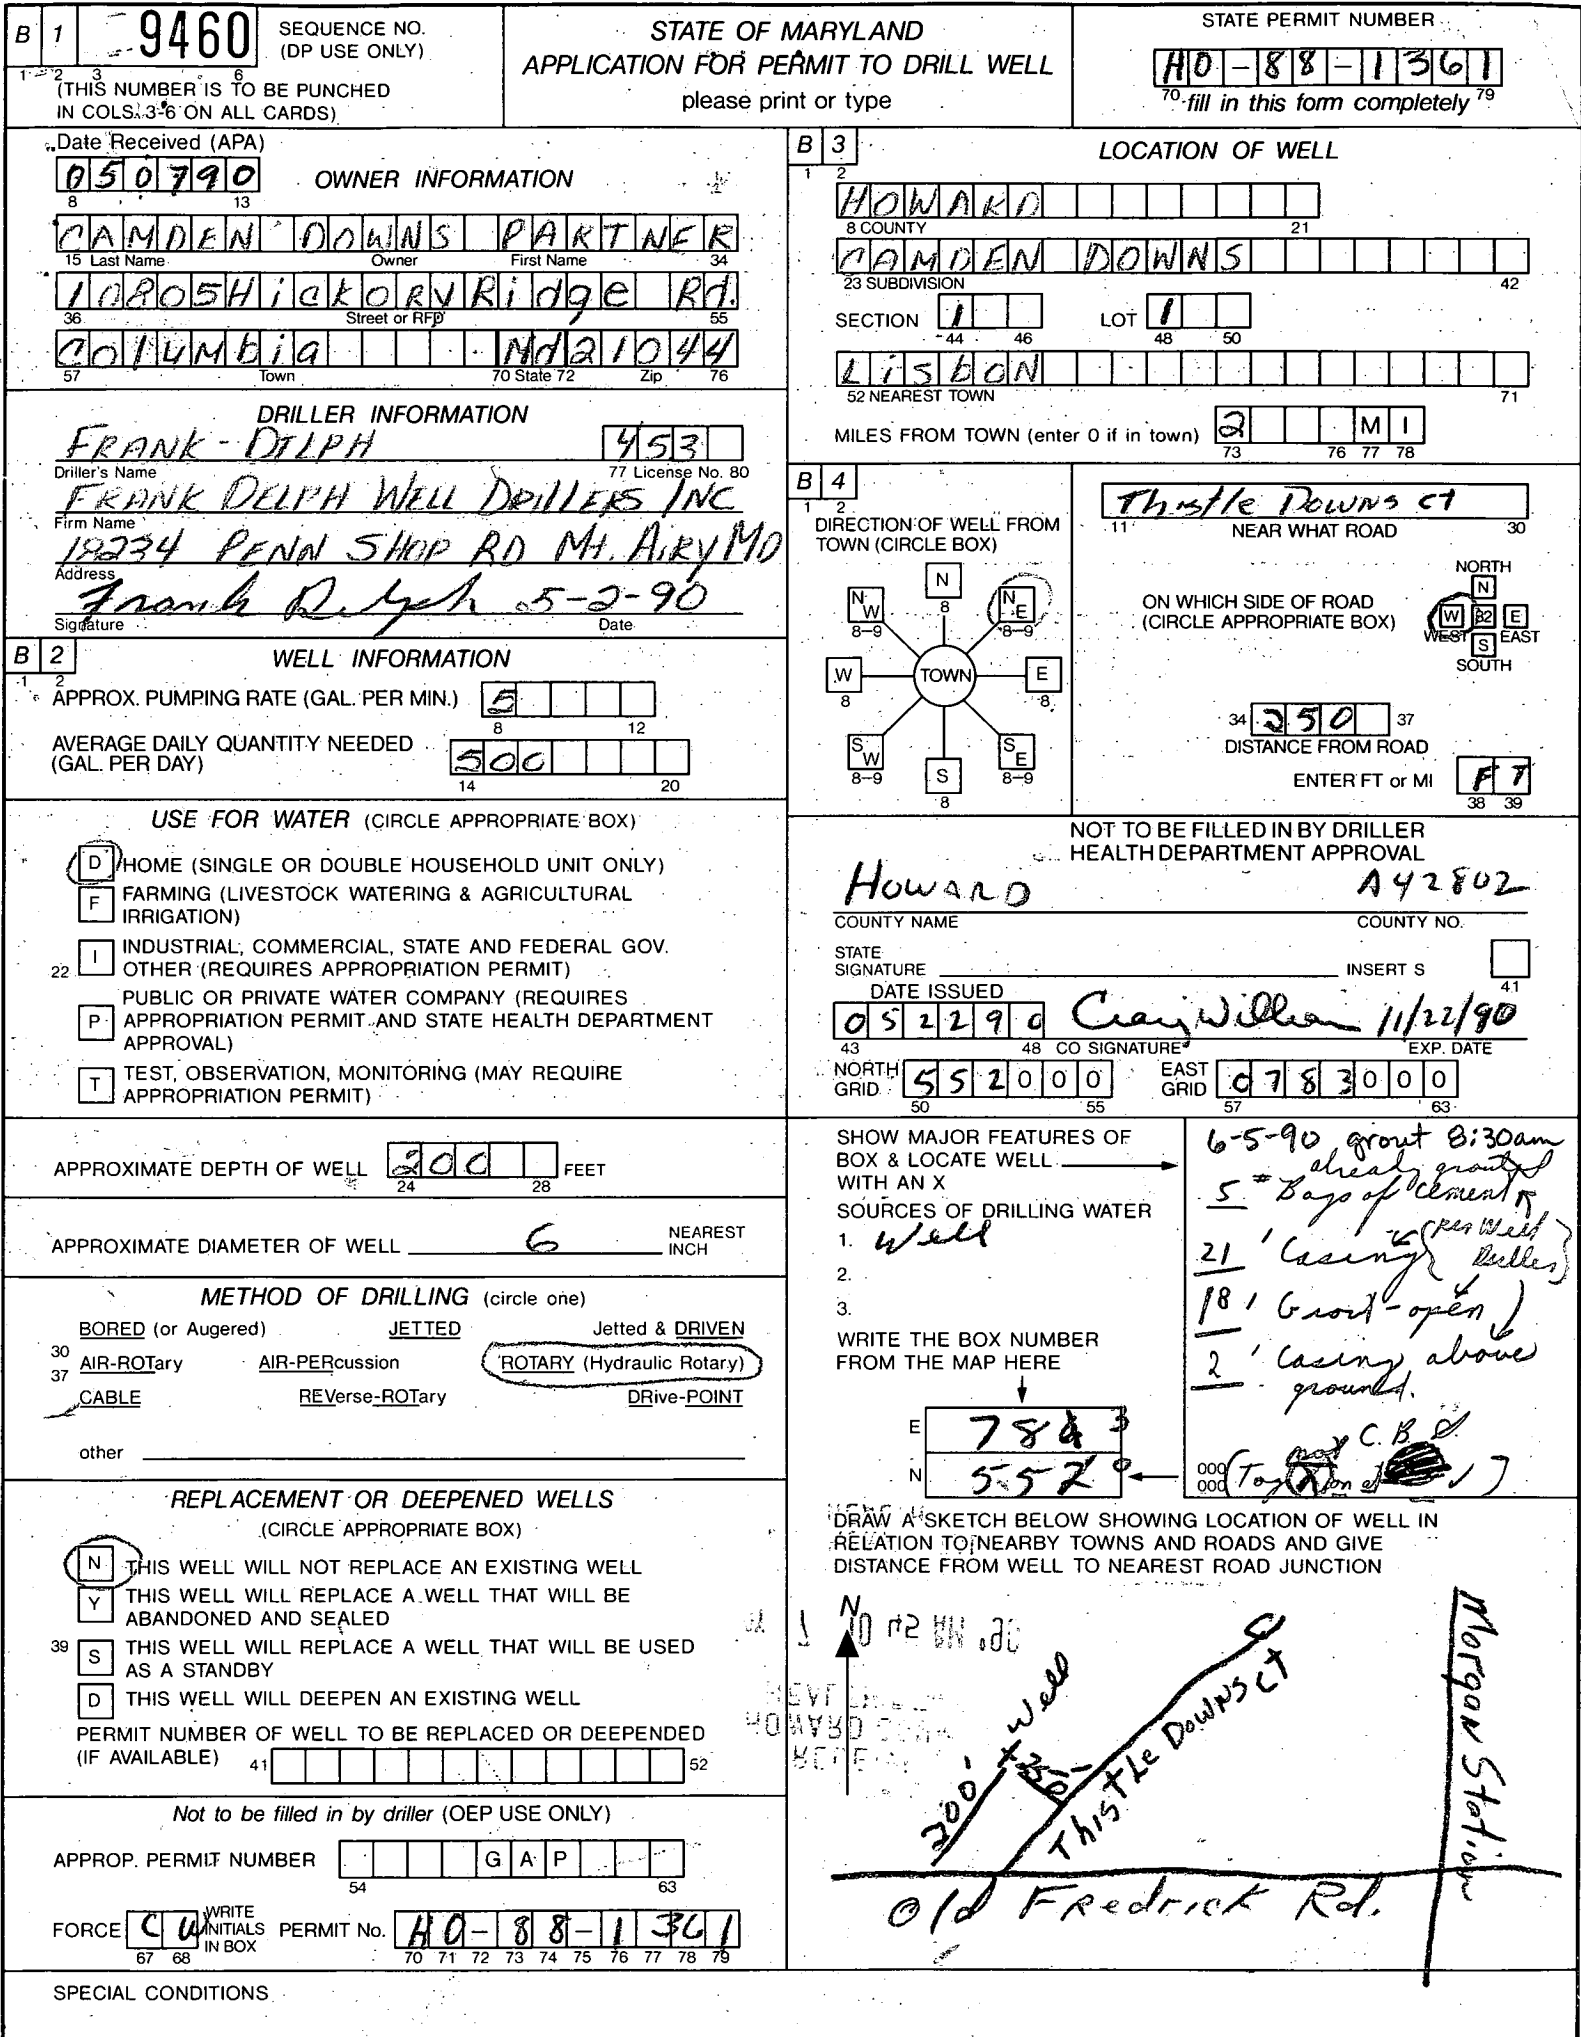 B 1 9460 SEQUENCE NO. (DP USE ONLY)
1 2 3 6
(THIS NUMBER IS TO BE PUNCHED
IN COLS. 3-6 ON ALL CARDS)
STATE OF MARYLAND
APPLICATION FOR PERMIT TO DRILL WELL
please print or type
STATE PERMIT NUMBER
HO-88-1361
70 fill in this form completely 79
Date Received (APA)
050790
8 13
OWNER INFORMATION
CAMDEN DOWNS PARTNER
15 Last Name Owner First Name 34
10805 Hickory Ridge Rd.
36 Street or RFD 55
Columbia Md 21044
57 Town 70 State 72 Zip 76
DRILLER INFORMATION
FRANK - DILPH 453
Driller's Name 77 License No. 80
FRANK DELPH WELL DRILLERS INC
Firm Name
18234 PENN SHOP RD Mt. AIRY MD
Address
Frank Delph 5-2-90
Signature Date
B 2 WELL INFORMATION
1 2
APPROX. PUMPING RATE (GAL. PER MIN.) 5
8 12
AVERAGE DAILY QUANTITY NEEDED
(GAL. PER DAY) 500
14 20
USE FOR WATER (CIRCLE APPROPRIATE BOX)
D HOME (SINGLE OR DOUBLE HOUSEHOLD UNIT ONLY)
F FARMING (LIVESTOCK WATERING & AGRICULTURAL
IRRIGATION)
22 I INDUSTRIAL, COMMERCIAL, STATE AND FEDERAL GOV.
OTHER (REQUIRES APPROPRIATION PERMIT)
P PUBLIC OR PRIVATE WATER COMPANY (REQUIRES
APPROPRIATION PERMIT AND STATE HEALTH DEPARTMENT
APPROVAL)
T TEST, OBSERVATION, MONITORING (MAY REQUIRE
APPROPRIATION PERMIT)
APPROXIMATE DEPTH OF WELL 200 FEET
24 28
APPROXIMATE DIAMETER OF WELL 6 NEAREST
INCH
METHOD OF DRILLING (circle one)
BORED (or Augered) JETTED Jetted & DRIVEN
30
37 AIR-ROTary AIR-PERcussion ROTARY (Hydraulic Rotary)
CABLE REVerse-ROTary DRive-POINT
other
REPLACEMENT OR DEEPENED WELLS
(CIRCLE APPROPRIATE BOX)
N THIS WELL WILL NOT REPLACE AN EXISTING WELL
Y THIS WELL WILL REPLACE A WELL THAT WILL BE
ABANDONED AND SEALED
39 S THIS WELL WILL REPLACE A WELL THAT WILL BE USED
AS A STANDBY
D THIS WELL WILL DEEPEN AN EXISTING WELL
PERMIT NUMBER OF WELL TO BE REPLACED OR DEEPENDED
(IF AVAILABLE) 41 52
Not to be filled in by driller (OEP USE ONLY)
APPROP. PERMIT NUMBER G A P
54 63
FORCE CW WRITE INITIALS IN BOX PERMIT No. HO-88-1361
67 68 70 71 72 73 74 75 76 77 78 79
SPECIAL CONDITIONS
B 3 LOCATION OF WELL
1 2
HOWARD
8 COUNTY 21
CAMDEN DOWNS
23 SUBDIVISION 42
SECTION 1 LOT 1
44 46 48 50
Lisbon
52 NEAREST TOWN 71
MILES FROM TOWN (enter 0 if in town) 2 M I
73 76 77 78
B 4
1 2
DIRECTION OF WELL FROM
TOWN (CIRCLE BOX)
N
8
NW
8-9
NE
8-9
W
8
TOWN
E
8
SW
8-9
SE
8-9
S
8
Thistle Downs Ct
11 NEAR WHAT ROAD 30
ON WHICH SIDE OF ROAD
(CIRCLE APPROPRIATE BOX)
NORTH
N
W 32 E
WEST EAST
S
SOUTH
34 250 37
DISTANCE FROM ROAD
ENTER FT or MI FT
38 39
NOT TO BE FILLED IN BY DRILLER
HEALTH DEPARTMENT APPROVAL
HOWARD A42802
COUNTY NAME COUNTY NO.
STATE
SIGNATURE INSERT S
41
DATE ISSUED
052290 Craig William 11/22/90
43 48 CO SIGNATURE EXP. DATE
NORTH GRID 552000 EAST GRID 0783000
50 55 57 63
SHOW MAJOR FEATURES OF
BOX & LOCATE WELL
WITH AN X
SOURCES OF DRILLING WATER
1. Well
2.
3.
WRITE THE BOX NUMBER
FROM THE MAP HERE
E 783
N 552 0
6-5-90 grout 8:30am
already grouted
5 # Bags of cement
21 ' Casing (per Well Driller)
18 ' Grout - open
2 ' Casing above
ground.
C.B.
000
000
DRAW A SKETCH BELOW SHOWING LOCATION OF WELL IN
RELATION TO NEARBY TOWNS AND ROADS AND GIVE
DISTANCE FROM WELL TO NEAREST ROAD JUNCTION
N
+ Well
200'
250'
Thistle Downs Ct
Morgan Station
Old Fredrick Rd.